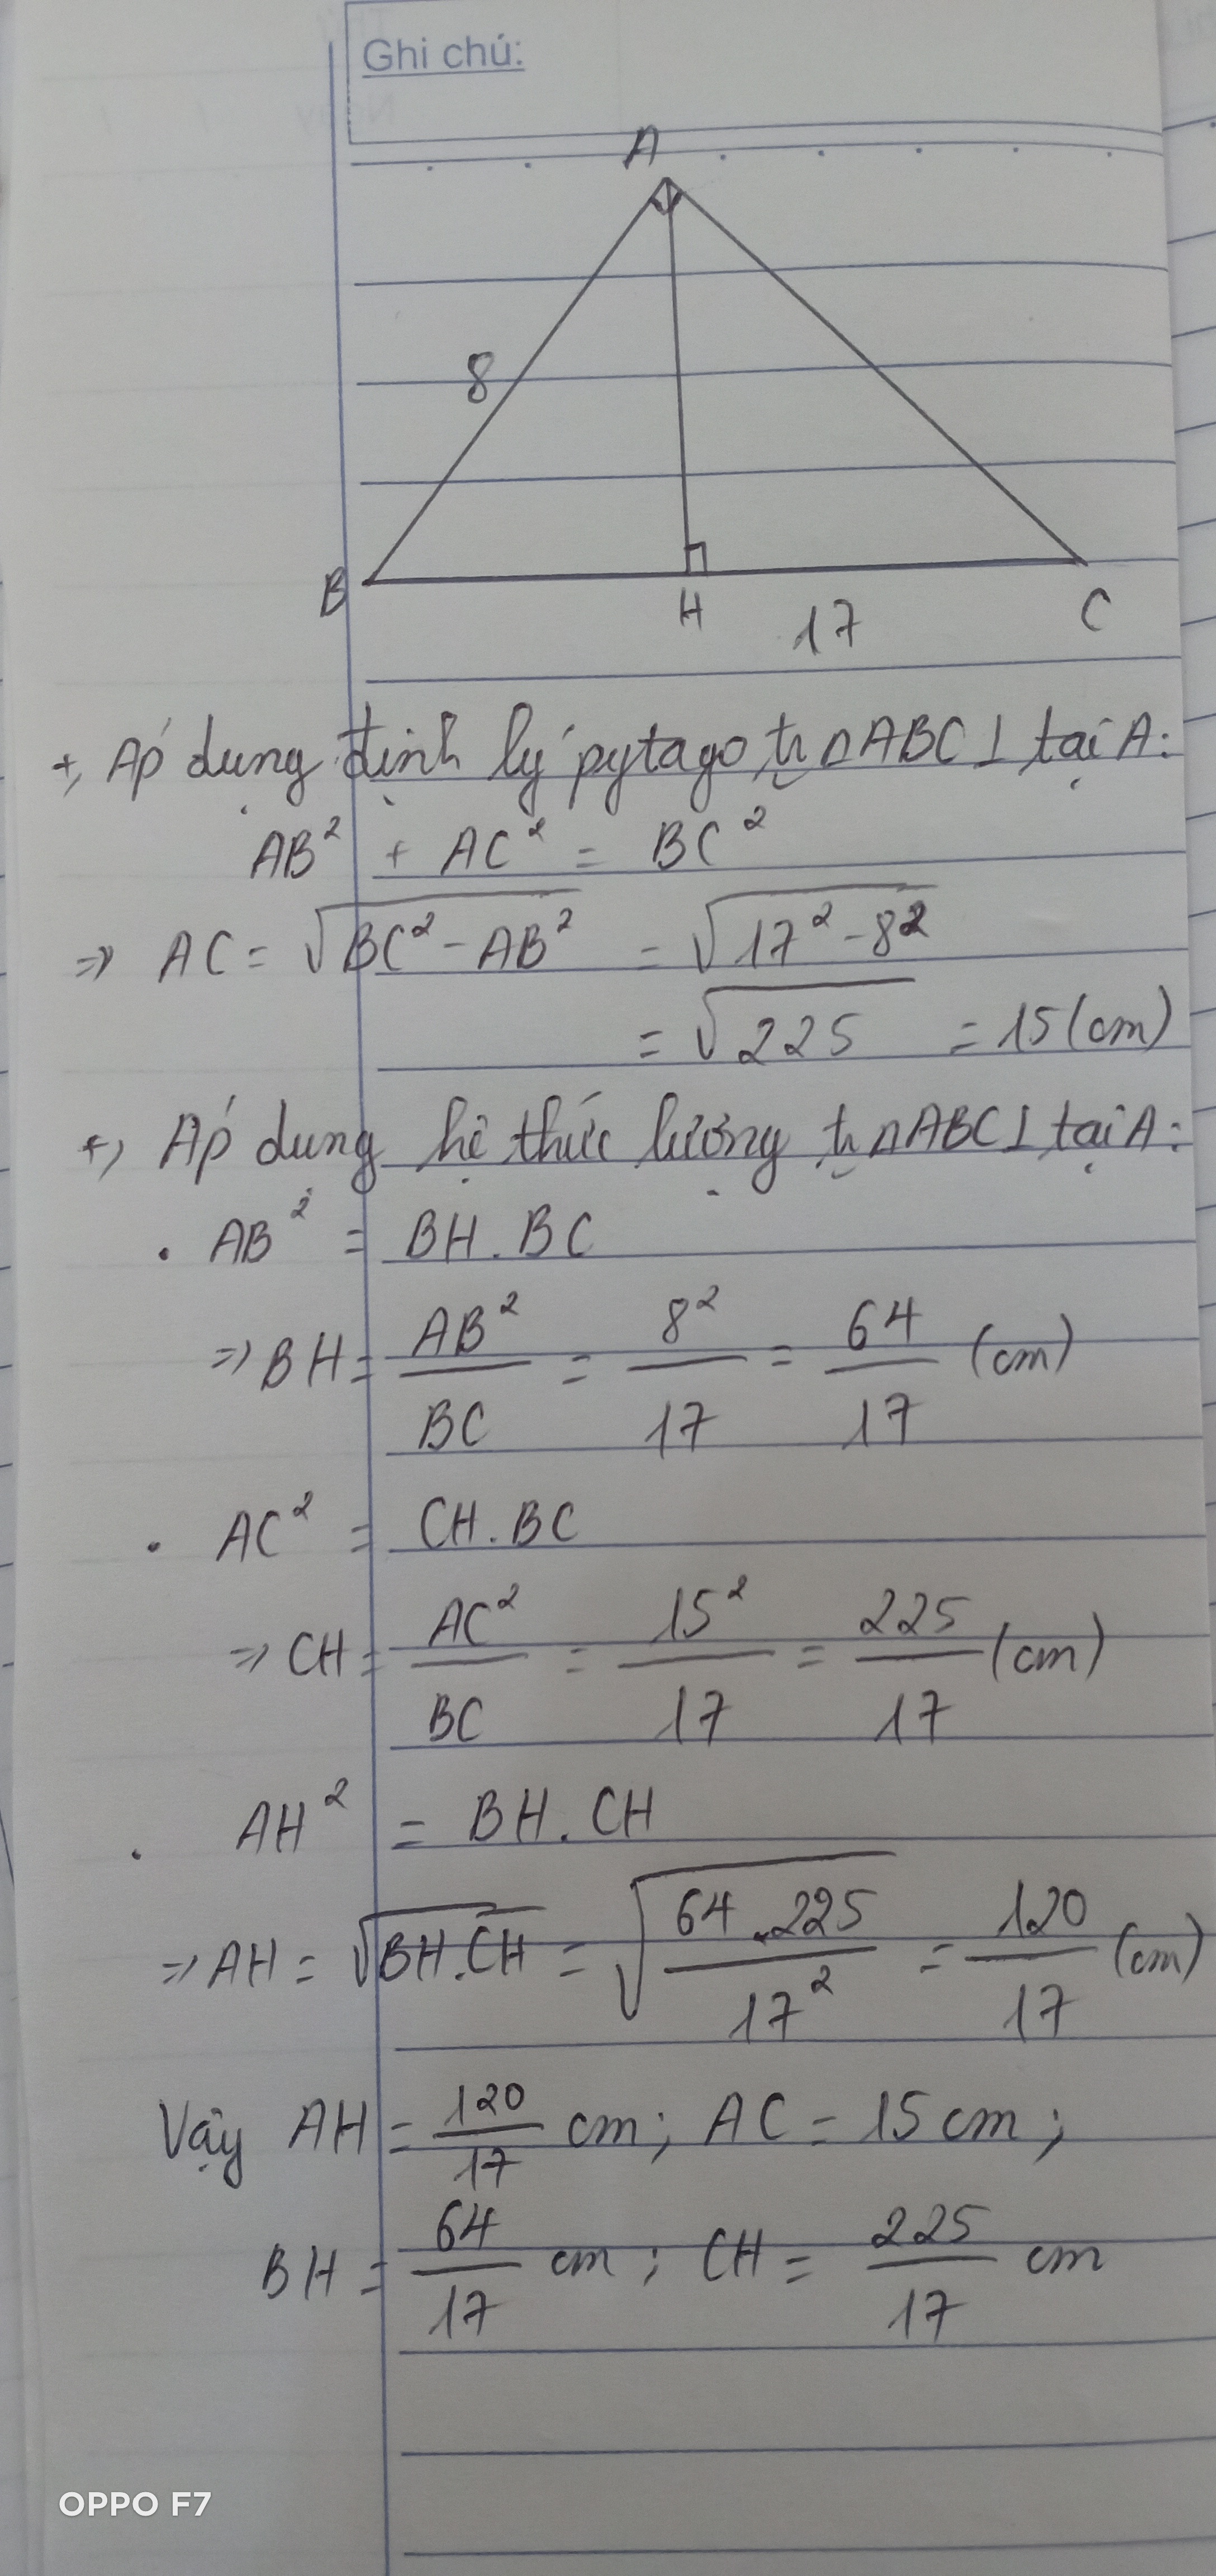 Ghi chú:
A
8
B
H
C
17
+, Áp dụng định lý pytago tr △ABC⊥ tại A:
AB² + AC² = BC²
=> AC = √(BC² - AB²) = √(17² - 8²)
= √225 = 15 (cm)
+, Áp dụng hệ thức lượng tr △ABC⊥ tại A:
. AB² = BH . BC
=> BH = AB²/BC = 8²/17 = 64/17 (cm)
. AC² = CH . BC
=> CH = AC²/BC = 15²/17 = 225/17 (cm)
. AH² = BH . CH
=> AH = √(BH.CH) = √(64.225/17²) = 120/17 (cm)
Vậy AH = 120/17 cm; AC = 15 cm;
BH = 64/17 cm; CH = 225/17 cm
OPPO F7